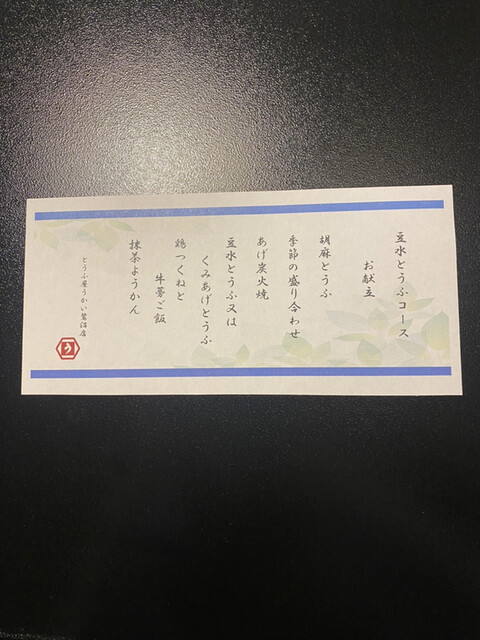 豆水とうふコース
お献立
胡麻とうふ
季節の盛り合わせ
あげ炭火焼
豆水とうふ又は
くみあげとうふ
鶏つくねと
牛蒡ご飯
抹茶ようかん
とうふ屋うかい鷺沼店
う